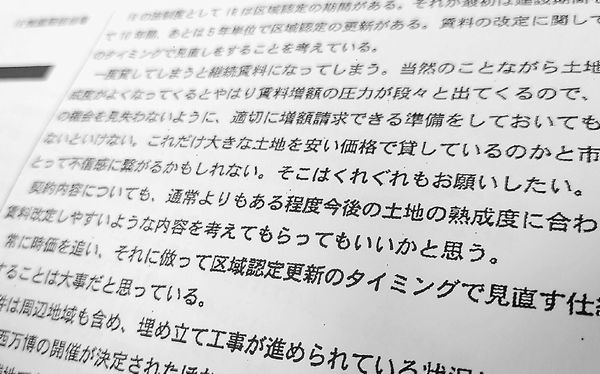 の法制度としてIRは区域認定の期間がある。それが最初は建設期間
で10年間、あとは5年単位で区域認定の更新がある。賃料の改定に関して
のタイミングで見直しをすることを考えている。
一度貸してしまうと継続賃料になってしまう。当然のことながら土地
成度がよくなってくるとやはり賃料増額の圧力が段々と出てくるので、
の機会を見失わないように、適切に増額請求できる準備をしておいても
ないといけない。これだけ大きな土地を安い価格で貸しているのかと市
とって不信感に繋がるかもしれない。そこはくれぐれもお願いしたい。
契約内容についても、通常よりもある程度今後の土地の熟成度に合わ
賃料改定しやすいような内容を考えてもらってもいいかと思う。
常に時価を追い、それに倣って区域認定更新のタイミングで見直す仕
することは大事だと思っている。
件は周辺地域も含め、埋め立て工事が進められている状況
西万博の開催が決定されたほか